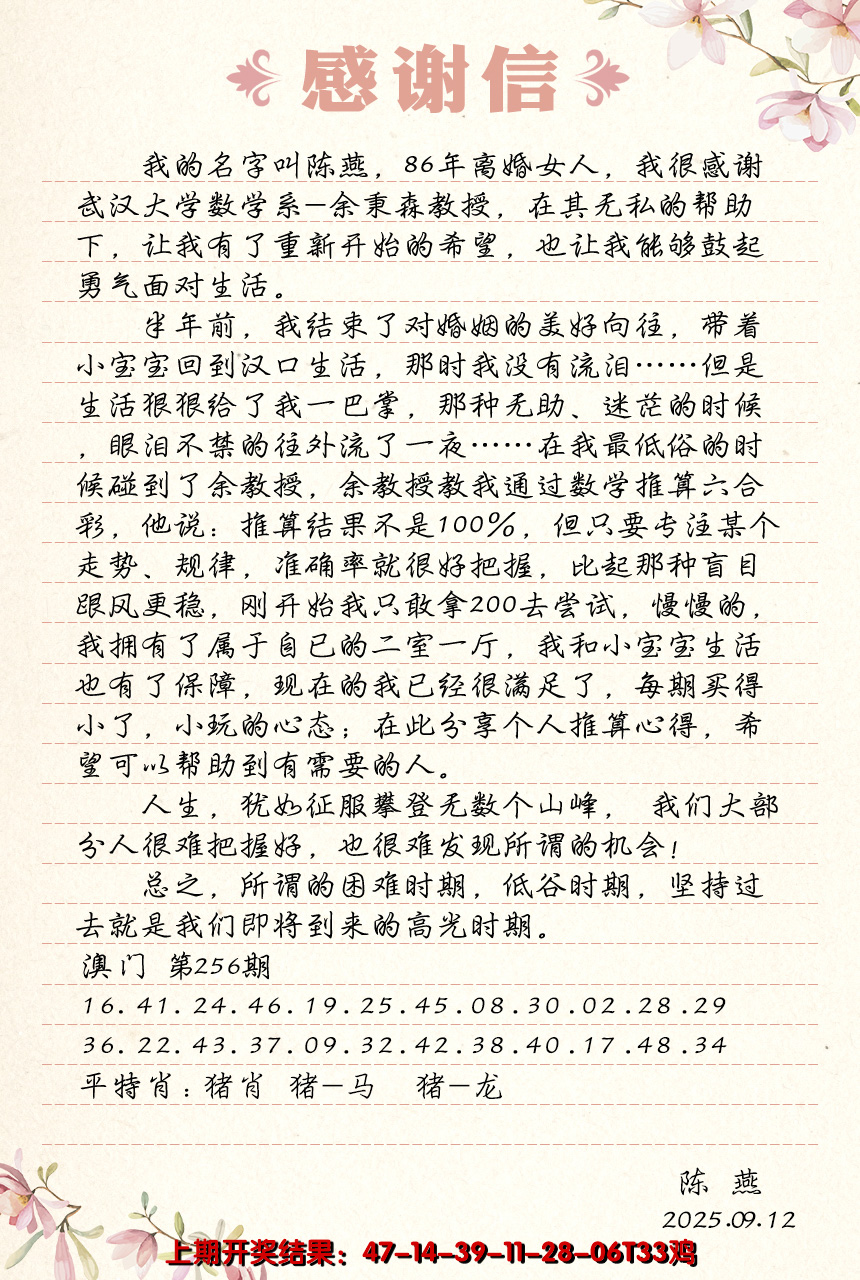 感谢信
我的名字叫陈燕，86年离婚女人，我很感谢
武汉大学数学系—余秉森教授，在其无私的帮助
下，让我有了重新开始的希望，也让我能够鼓起
勇气面对生活。
半年前，我结束了对婚姻的美好向往，带着
小宝宝回到汉口生活，那时我没有流泪……但是
生活狠狠给了我一巴掌，那种无助、迷茫的时候
，眼泪不禁的往外流了一夜……在我最低俗的时
候碰到了余教授，余教授教我通过数学推算六合
彩，他说：推算结果不是100%，但只要专注某个
走势、规律，准确率就很好把握，比起那种盲目
跟风更稳，刚开始我只敢拿200去尝试，慢慢的，
我拥有了属于自已的二室一厅，我和小宝宝生活
也有了保障，现在的我已经很满足了，每期买得
小了，小玩的心态；在此分享个人推算心得，希
望可以帮助到有需要的人。
人生，犹如征服攀登无数个山峰， 我们大部
分人很难把握好，也很难发现所谓的机会！
总之，所谓的困难时期，低谷时期，坚持过
去就是我们即将到来的高光时期。
澳门 第256期
16.41.24.46.19.25.45.08.30.02.28.29
36.22.43.37.09.32.42.38.40.17.48.34
平特肖：猪肖 猪—马 猪—龙
陈 燕
2025.09.12
上期开奖结果：47-14-39-11-28-06T33鸡